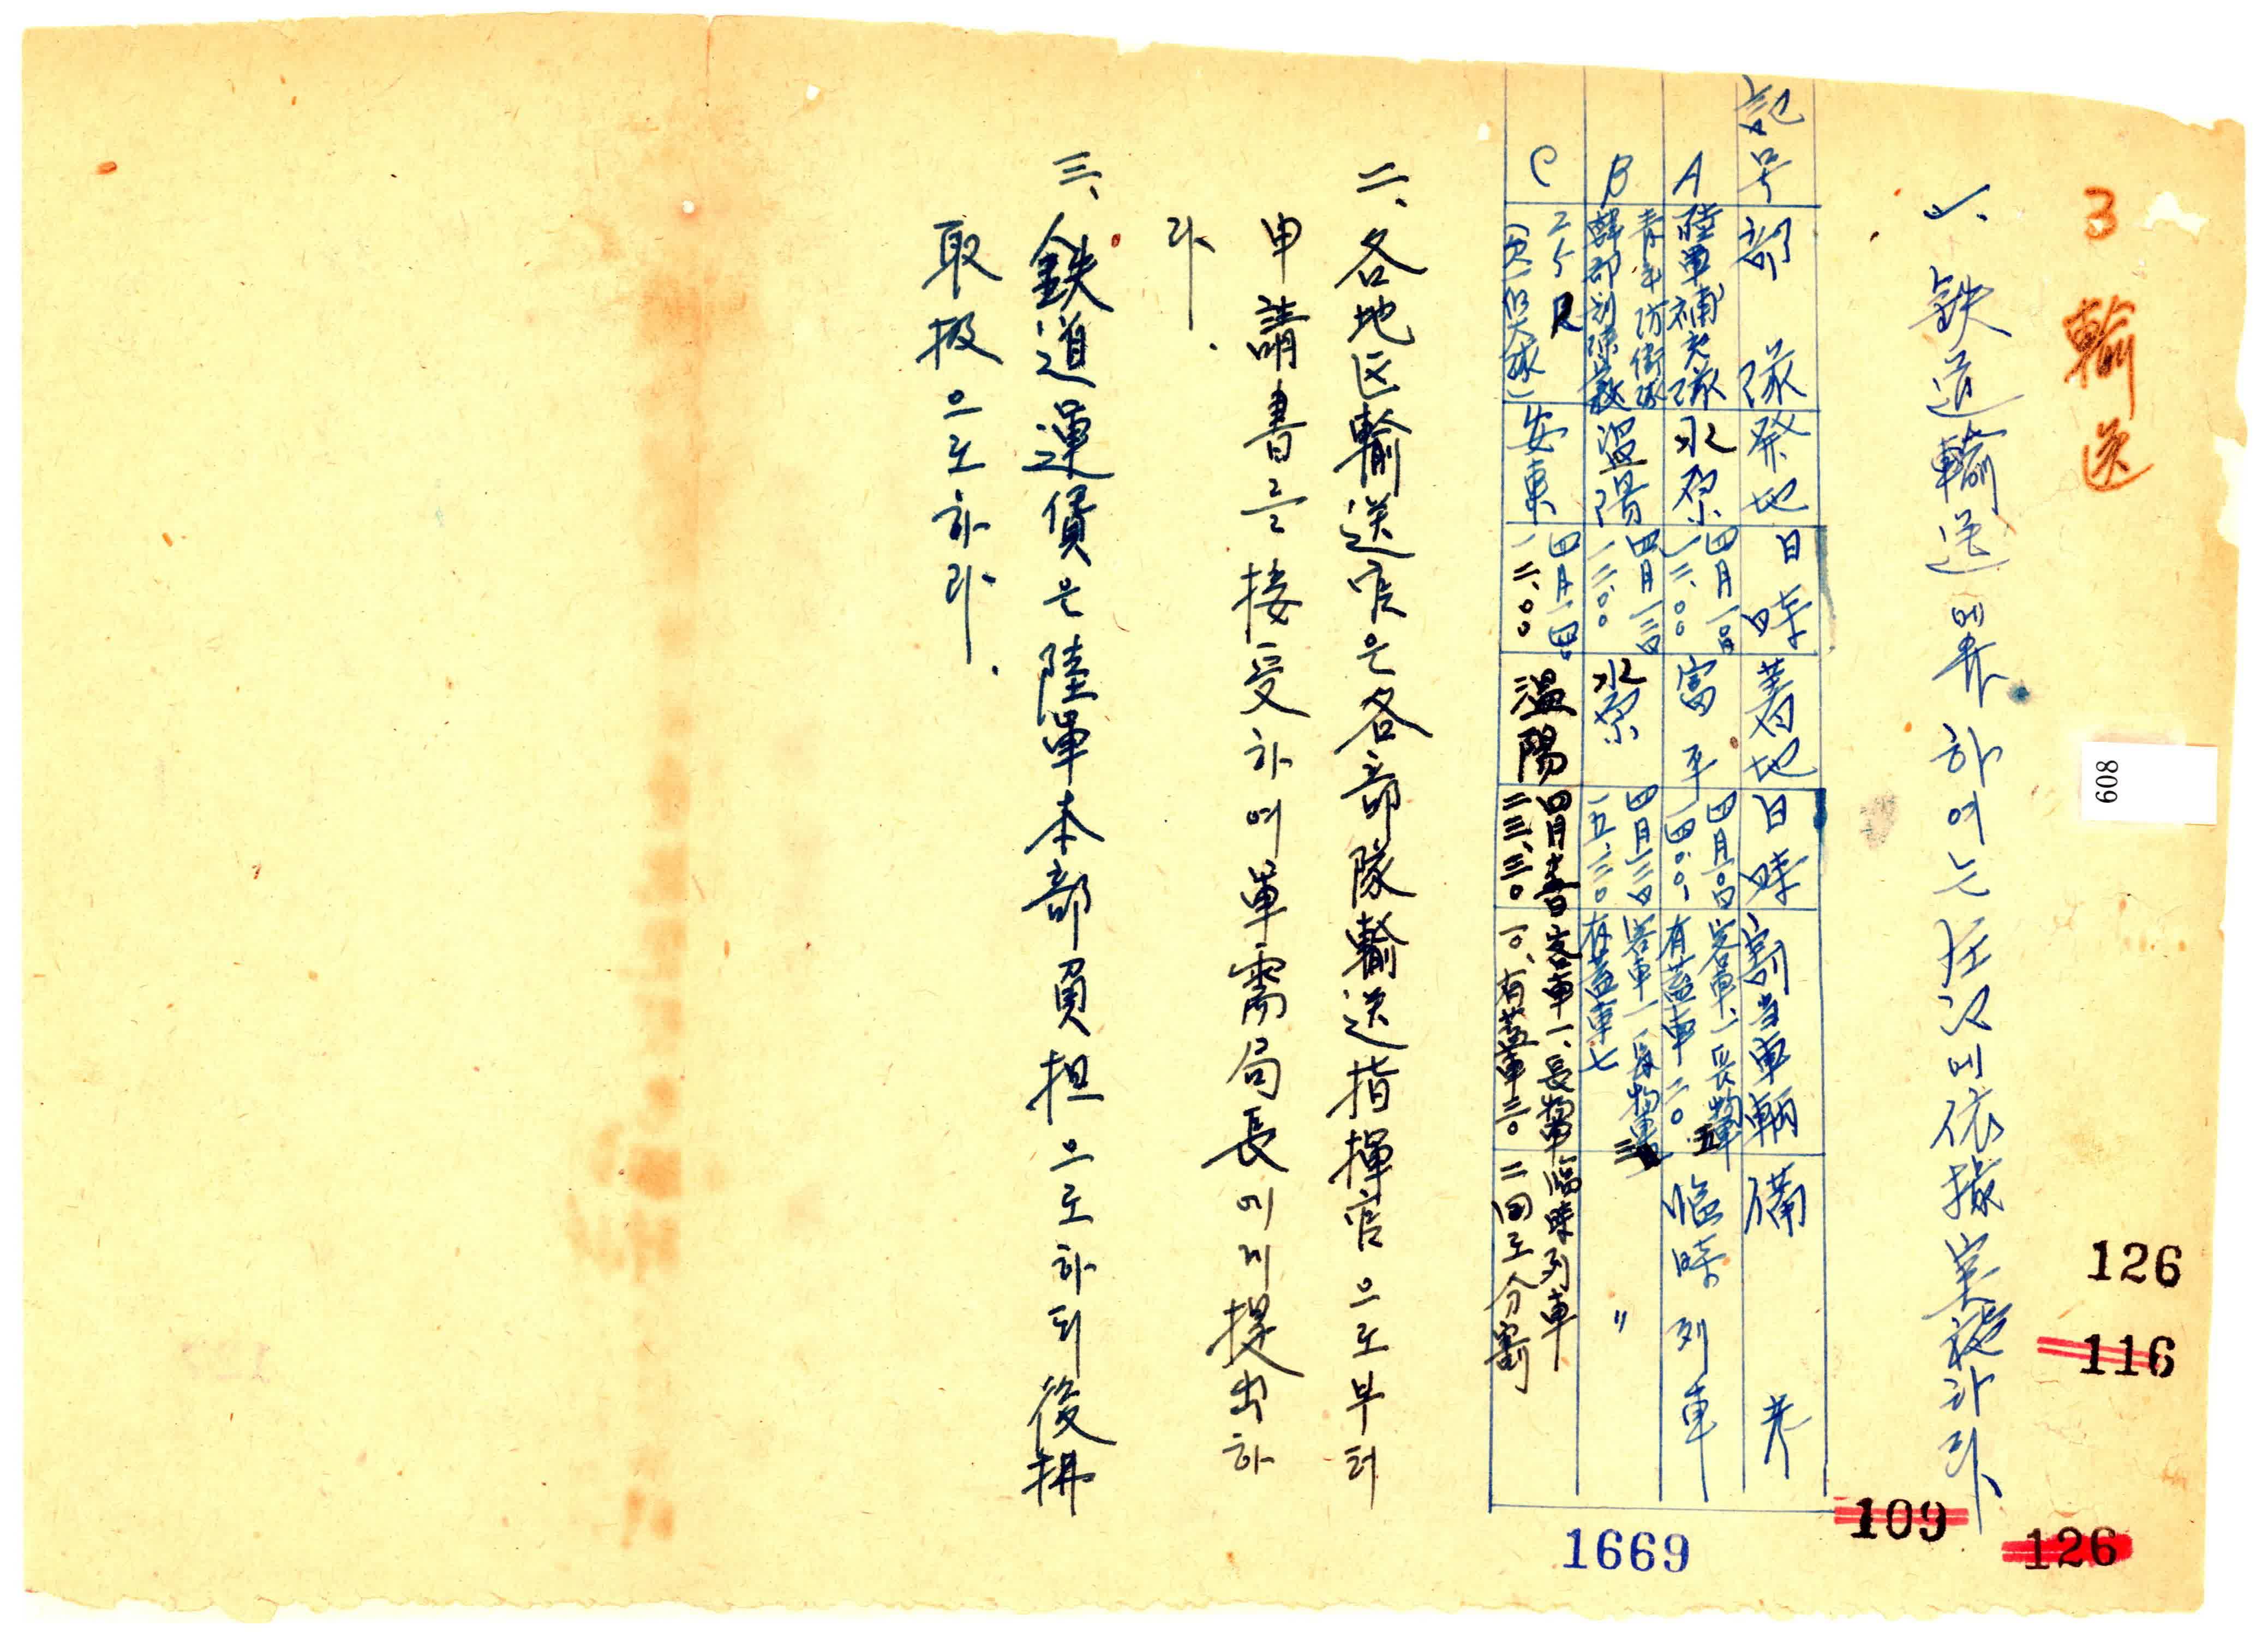 3 輸送
一、鉄道輸送에 関하여는 左記에 依據 実施하라
記号 部隊 発地 日時 着地 日時 割当車輌 備考
A 陸軍補充隊 水原 四月一〇日 一二、〇〇 富平 四月一〇日 一四、〇〇 客車一 長物車五 有蓋車二〇 臨時列車
B 青年防衛隊幹部訓練学校 温陽 四月一三日 一二、〇〇 水原 四月一三日 一五、三〇 客車一 長物車三 有蓋車七 〃
C 二五R (欠一個大隊) 安東 四月一四日 一二、〇〇 温陽 四月十五日 二三、三〇 客車一、長物車一〇、有蓋車三〇 臨時列車 二回로 分割
二、各地区輸送官은 各部隊輸送指揮官으로부터
申請書를 接受하여 軍需局長에게 提出하
라.
三、鉄道運賃은 陸軍本部負担으로하되 後拂
取扱으로하라.
608
126
116
109
126
1669